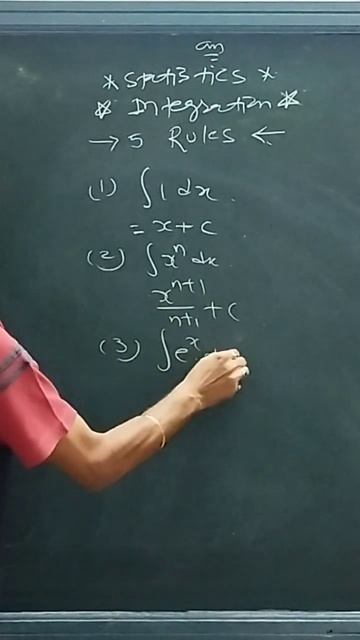 * Statistics *
* Integration *
→ 5 Rules ←
(1) ∫ 1 dx
= x + c
(2) ∫ xⁿ dx
xⁿ⁺¹/n+1 + c
(3) ∫ eˣ